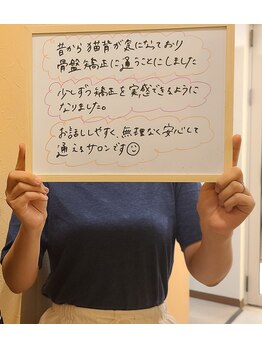 昔から猫背が気になっており
骨盤矯正に通うことにしました
少しずつ矯正を実感できるように
なりました。
お話ししやすく、無理なく安心して
通えるサロンです